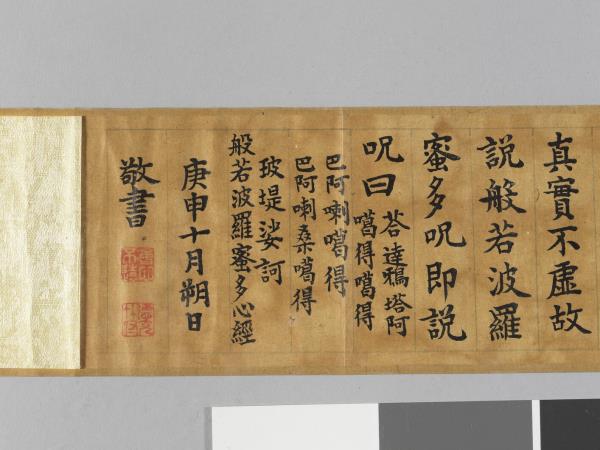 真實不虛故
說般若波羅
蜜多呪即說
呪曰
荅達鴉塔阿
噶得噶得
巴阿喇噶得
巴阿喇桒噶得
玻堤娑訶
般若波羅蜜多心經
庚申十月朔日
敬書